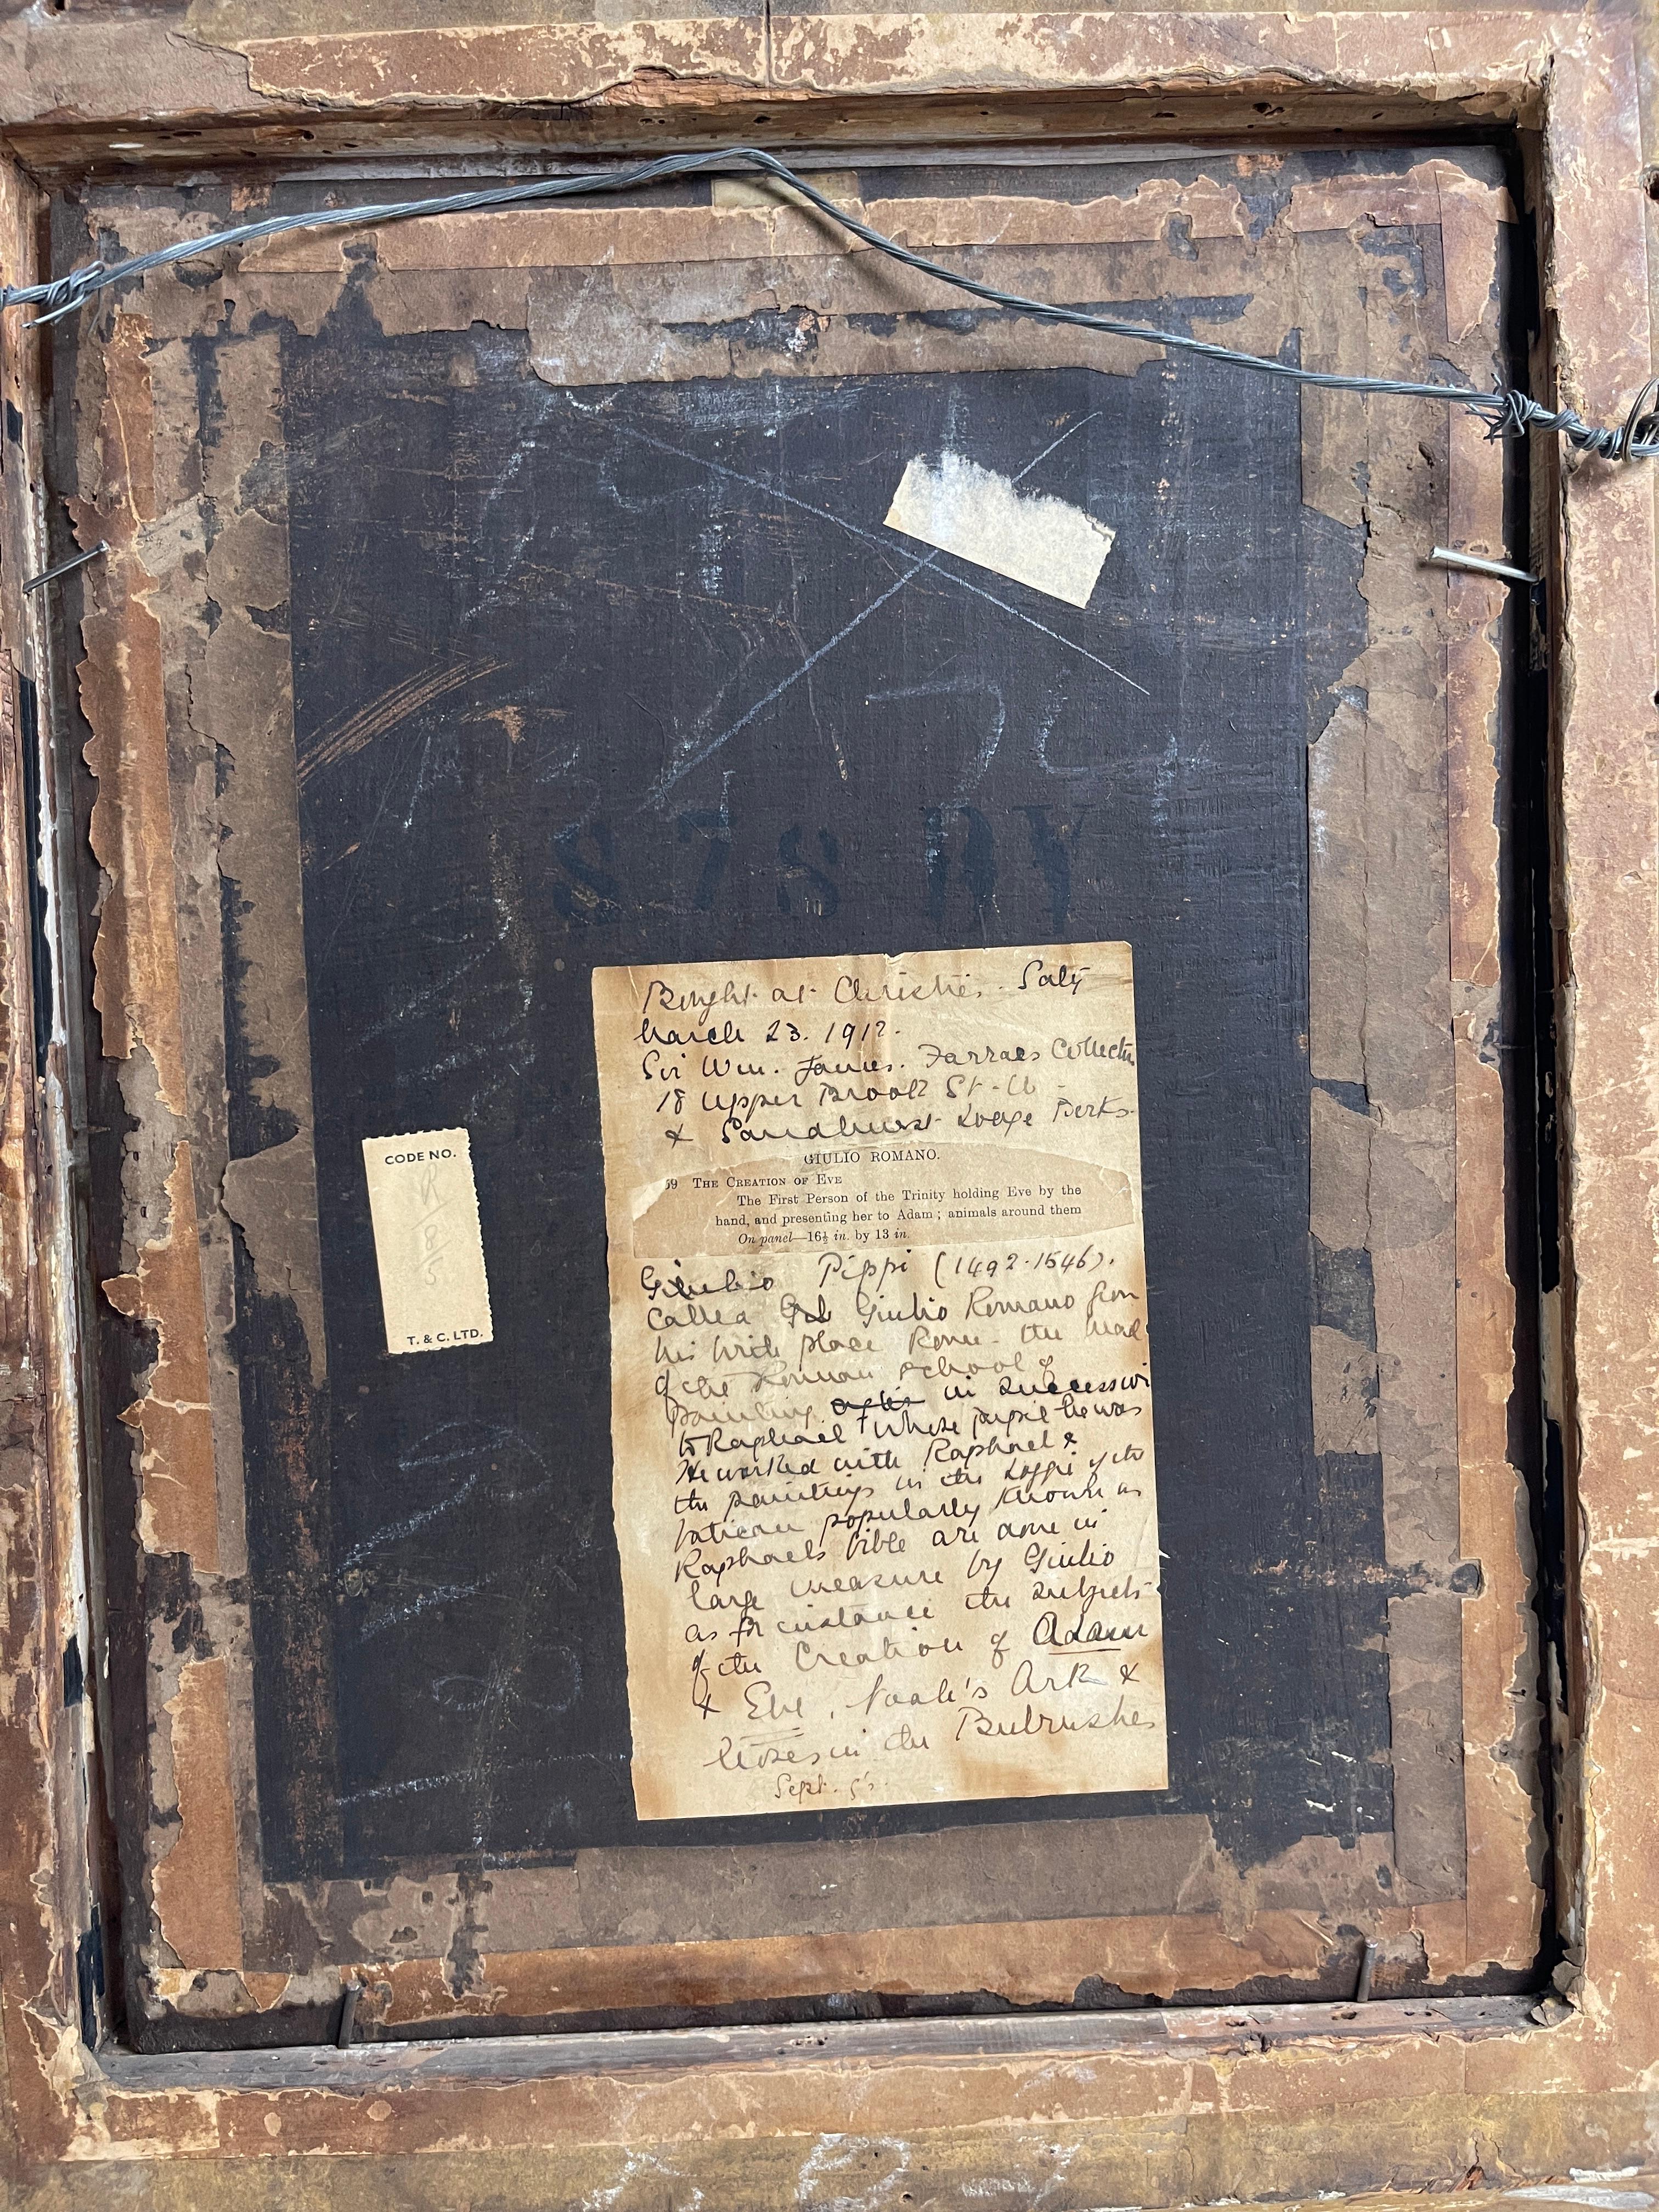 878 DY
Bought at Christie's Saty
March 23. 1912.
Sir Wm. James. Farrars Collectn
18 Upper Brook St. W -
& Sandhurst Lodge Berks.
GIULIO ROMANO.
59 THE CREATION OF EVE
The First Person of the Trinity holding Eve by the
hand, and presenting her to Adam ; animals around them
On panel—16½ in. by 13 in.
Giulio Pippi (1492-1546).
Called Giulio Romano from
his birth place Rome - the head
of the Roman school of
painting after in succession
to Raphael whose pupil he was
He worked with Raphael &
the paintings in the Loggie of the
Vatican popularly known as
Raphaels bible are done in
large measure by Giulio
as for instance the subjects
of the Creation of Adam
& Eve, Noah's Ark &
Moses in the Bulrushes
Sept.
CODE NO.
R
8/5
T. & C. LTD.